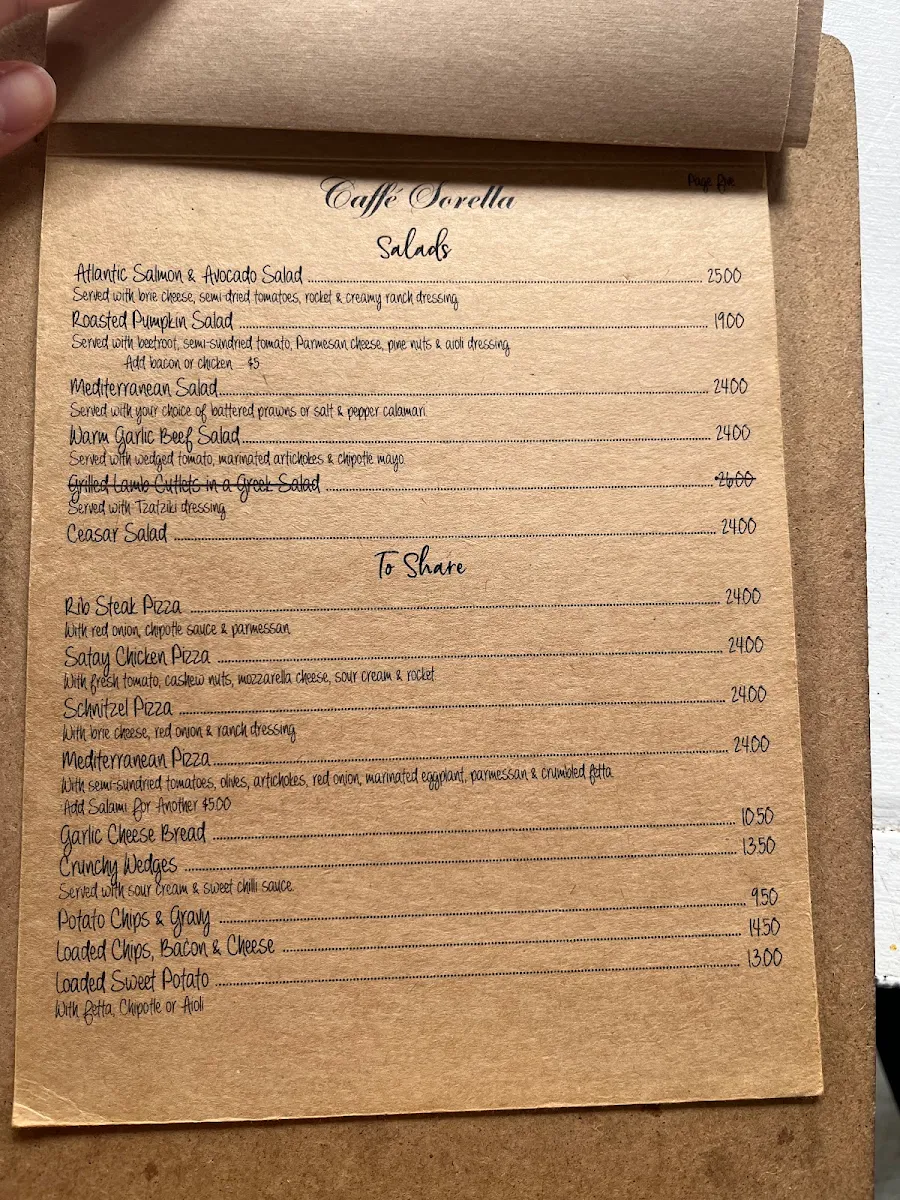 Page five
Caffé Sorella
Salads
Atlantic Salmon & Avocado Salad 25.00
Served with brie cheese, semi-dried tomatoes, rocket & creamy ranch dressing
Roasted Pumpkin Salad 19.00
Served with beetroot, semi-sundried tomato, Parmesan cheese, pine nuts & aioli dressing
Add bacon or chicken $5
Mediterranean Salad 24.00
Served with your choice of battered prawns or salt & pepper calamari
Warm Garlic Beef Salad 24.00
Served with wedged tomato, marinated artichokes & chipotle mayo
Grilled Lamb Cutlets in a Greek Salad 26.00
Served with Tzatziki dressing
Ceasar Salad 24.00
To Share
Rib Steak Pizza 24.00
With red onion, chipotle sauce & parmessan
Satay Chicken Pizza 24.00
With fresh tomato, cashew nuts, mozzarella cheese, sour cream & rocket
Schnitzel Pizza 24.00
With brie cheese, red onion & ranch dressing
Mediterranean Pizza 24.00
With semi-sundried tomatoes, olives, artichokes, red onion, marinated eggplant, parmessan & crumbled fetta.
Add Salami for Another $5.00
Garlic Cheese Bread 10.50
Crunchy Wedges 13.50
Served with sour cream & sweet chilli sauce.
Potato Chips & Gravy 9.50
Loaded Chips, Bacon & Cheese 14.50
Loaded Sweet Potato 13.00
With fetta, Chipotle or Aioli